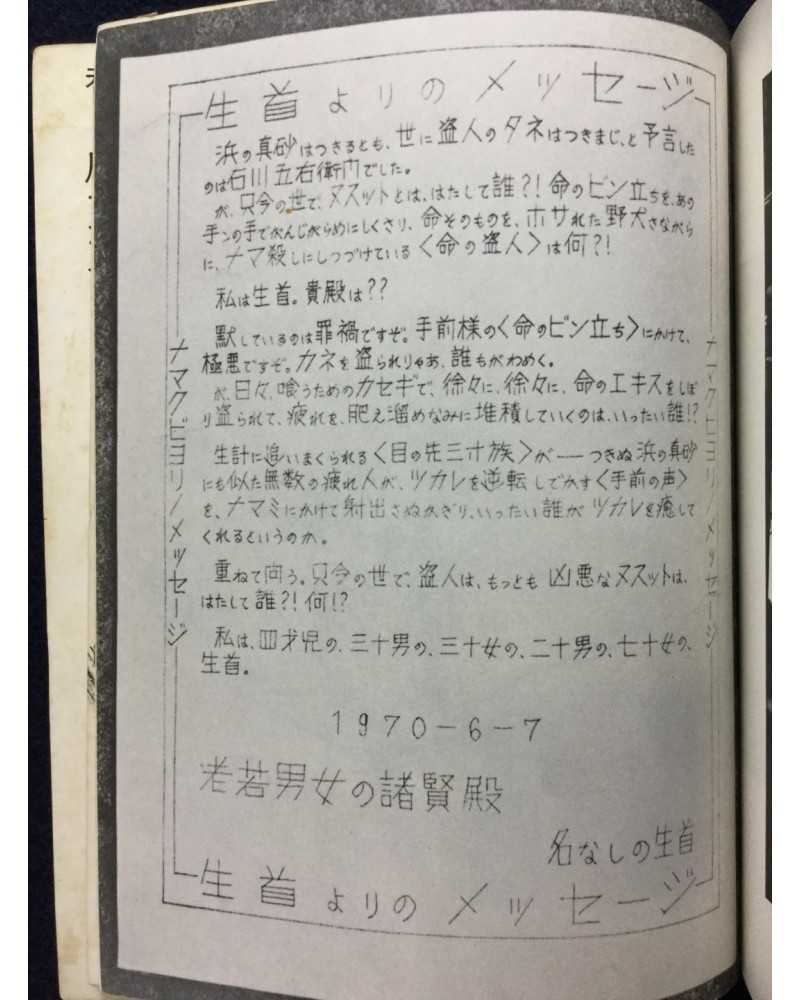 生首よりのメッセージ
浜の真砂はつきるとも、世に盗人のタネはつきまじ、と予言した
のは石川五右衛門でした。
が、只今の世で、ヌスットとは、はたして誰?!命のビン立ちを、あの
手ンの手でがんじがらめにしくさり、命そのものを、ホサれた野犬さながら
に、ナマ殺しにしつづけている〈命の盗人〉は何?!
私は生首。貴殿は??
黙しているのは罪禍ですぞ。手前様の〈命のビン立ち〉にかけて、
極悪ですぞ。カネを盗られりゃあ、誰もがわめく。
が、日々、喰うためのカセギで、徐々に、徐々に、命のエキスをしぼ
り盗られて、疲れを、肥え溜めなみに堆積していくのは、いったい誰!?
生計に追いまくられる〈目の先三寸族〉が——つきぬ浜の真砂
にも似た無数の疲れ人が、ツカレを逆転しでかす〈手前の声〉
を、ナマミにかけて射出さぬかぎり、いったい誰がツカレを癒して
くれるというのか。
重ねて向う。只今の世で、盗人は、もっとも凶悪なヌスットは、
はたして誰?!何!?
私は、四才児の、三十男の、三十女の、二十男の、七十女の、
生首。
1970-6-7
老若男女の諸賢殿
名なしの生首
生首よりのメッセージ
ナマクビヨリノメッセージ
ナマクビヨリノメッセージ